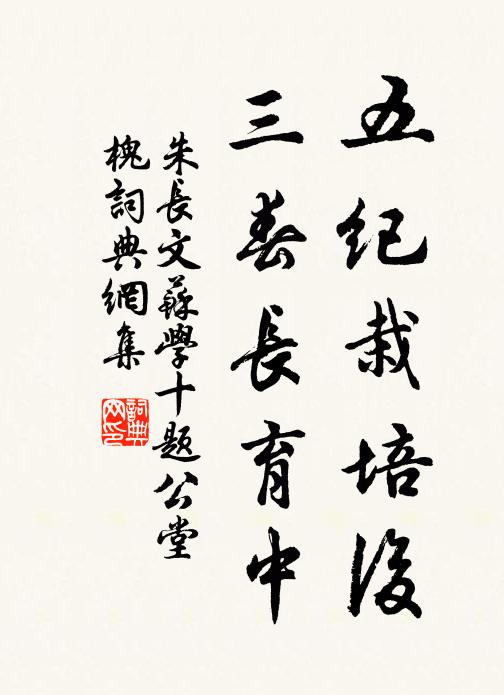 五纪栽培後
三春長育中
朱長文蘇學十題公堂
槐詞典網集
詞典网印